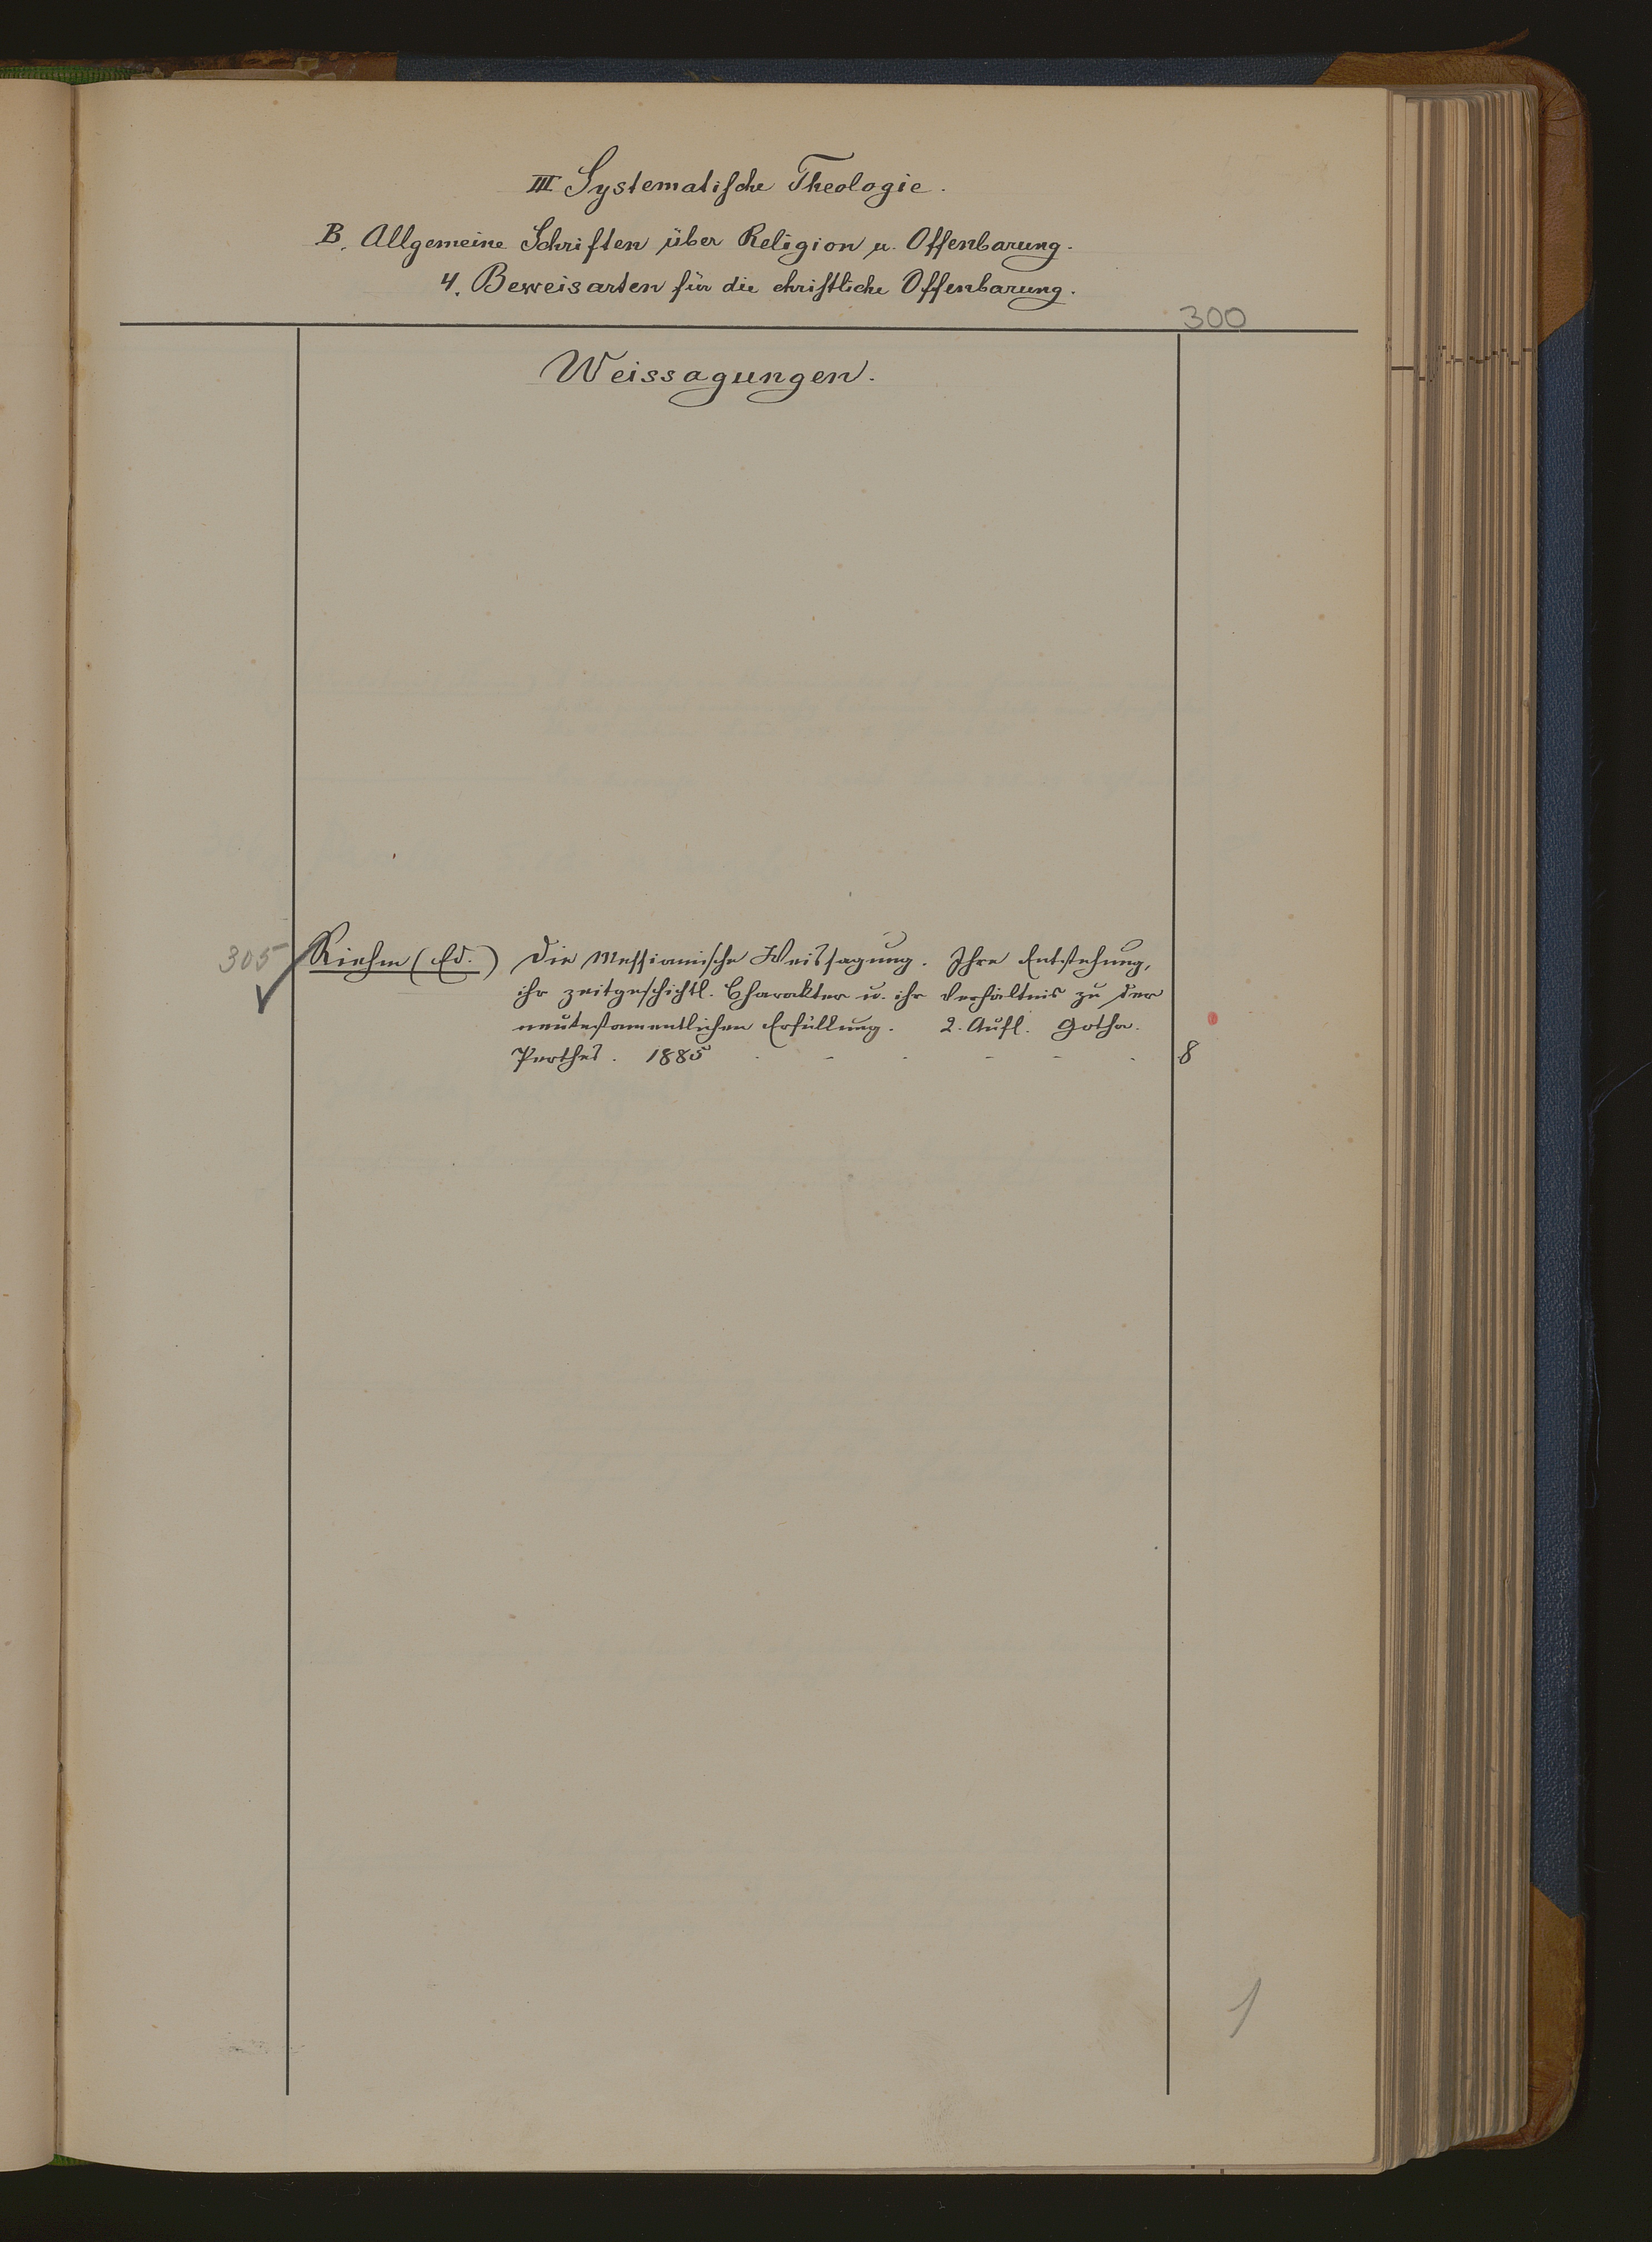 III Systematische Theologie.
B. Allgemeine Schriften über Religion u. Offenbarung.
4. Beweisarten für die christliche Offenbarung.
300
Weissagungen.
305 Riehm (Ed.) Die Messianische Weissagung. Ihre Entstehung,
ihr zeitgeschichtl. Charakter u. ihr Verhältnis zu der
neutestamentlichen Erfüllung. 2. Aufl. Gotha.
Perthes. 1885 . - . - - . 8
1